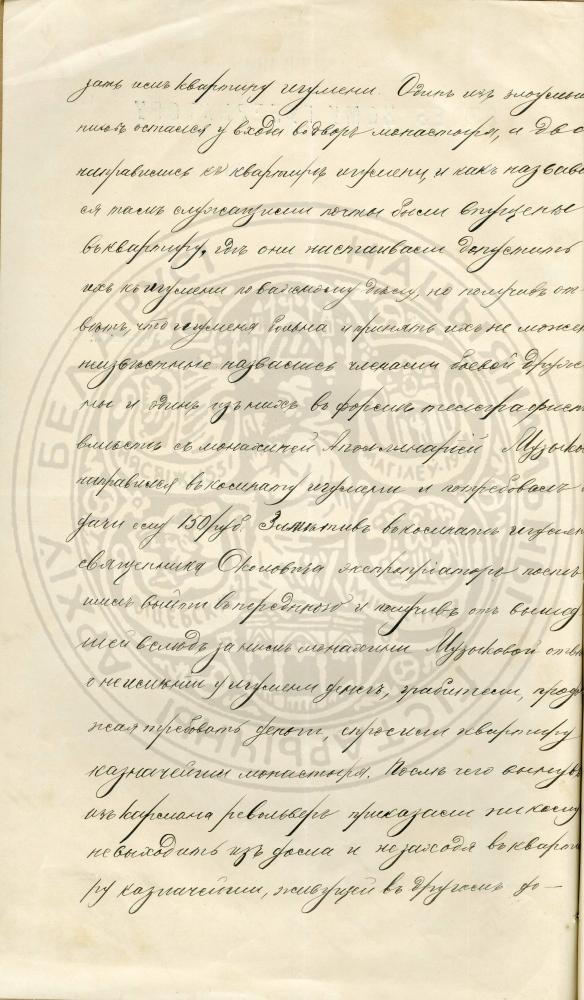 зать имъ квартиру игумени. Одинъ изъ злоумыш
никовъ остался у входа во дворъ монастыря, а двое
направились къ квартирѣ игумени, и какъ назвав
ся тамъ служащими почты были впущены
въ квартиру, гдѣ они настаивали допустить
ихъ къ игумени по важному дѣлу, но получивъ от
вѣтъ, что игуменя больна и принять ихъ не може
неизвѣстные назвались членами боевой дружи
ны и одинъ изъ нихъ въ формѣ телеграфиста
вмѣстѣ съ монахиней Аполлинаріей Музыков
направился въ комнату игумени и потребовалъ
дачи ему 150 руб. Замѣтивъ въ комнатѣ игумен
священника Околовича экспропріаторъ поспѣ
шилъ выйти въ переднюю и получивъ отъ вышед
шей вслѣдъ за нимъ монахини Музыковой отвѣ
о неимѣніи у игумени денегъ, грабители, продол
жая требовать деньги, спросили квартиру
казначейши монастыря. Послѣ чего вынувъ
изъ кармана револьверъ приказали никому
не выходить изъ дома и не заходя въ кварти
ру казначейши, живущей въ другомъ до-